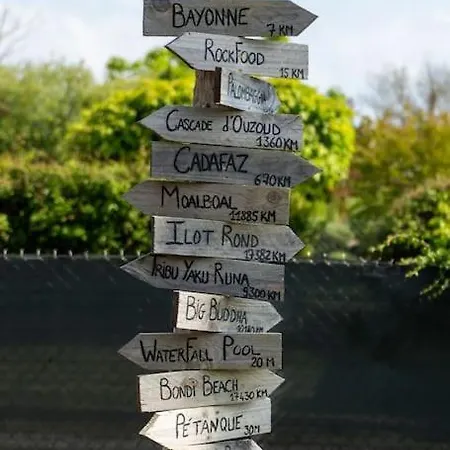 BAYONNE
7 KM
ROCKFOOD
15 KM
CASCADE D'OUZOUD
1360 KM
CADAFAZ
670 KM
MOALBOAL
11885 KM
ILOT ROND
17382 KM
TRIBU YAKU RUNA
9300 KM
BIG BUDDHA
WATERFALL POOL
20 M
BONDI BEACH
17430 KM
PÉTANQUE
30M